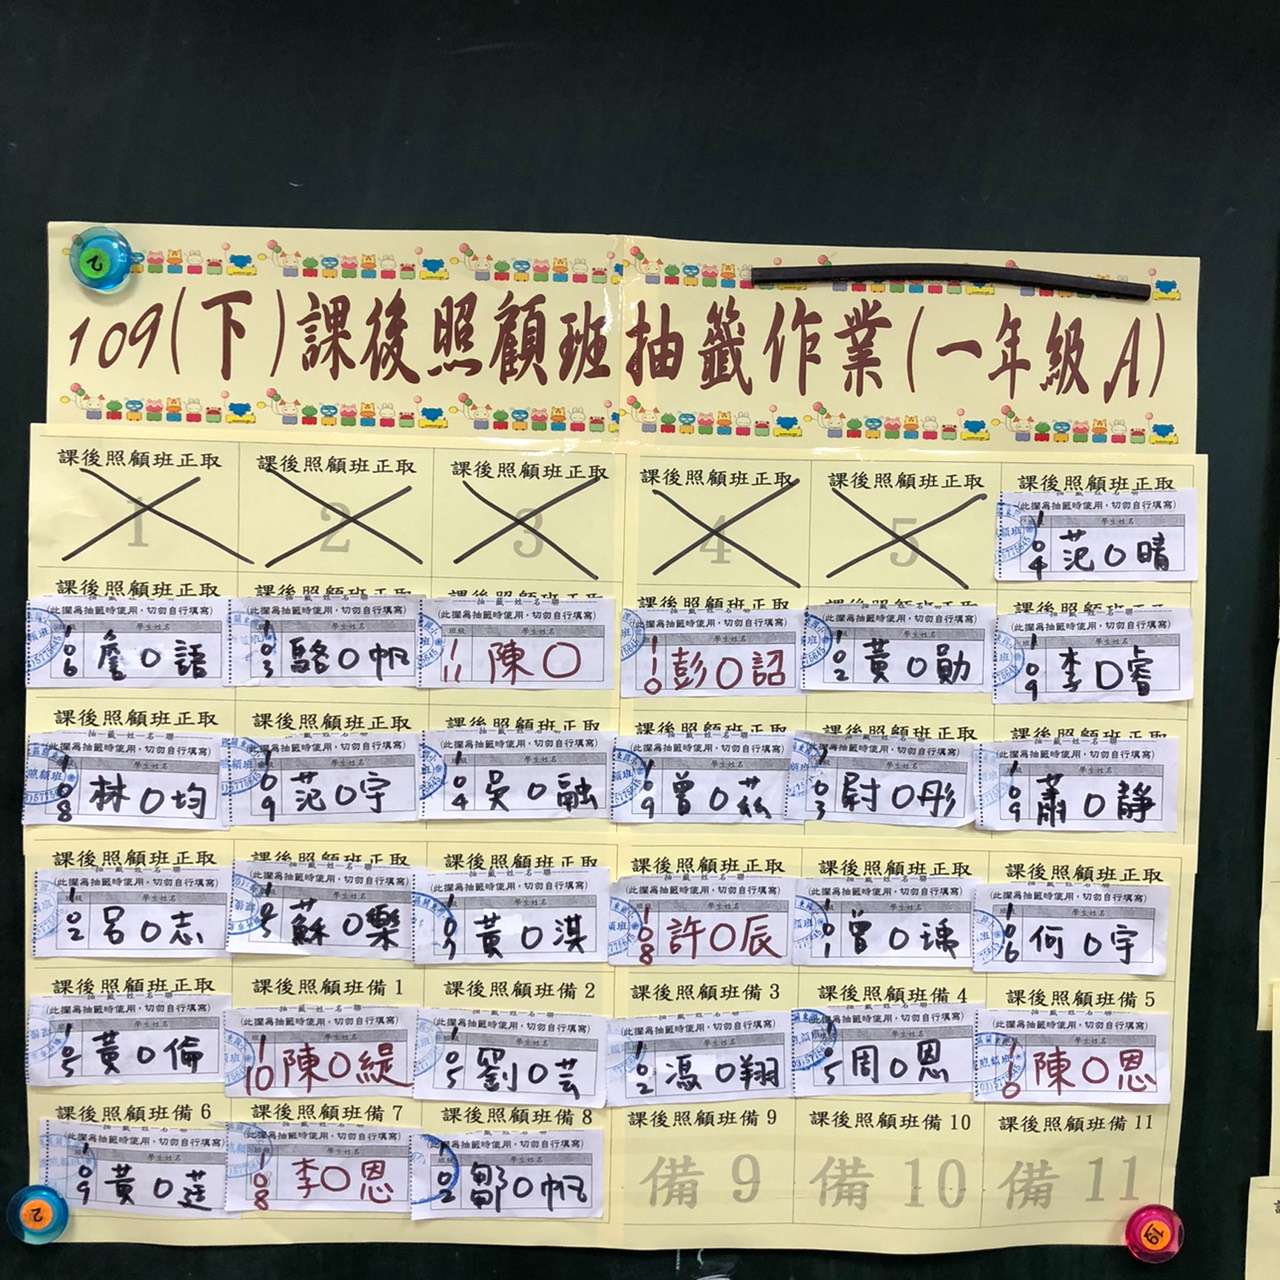 109(下)課後照顧班抽籤作業(一年級A)
課後照顧班正取 課後照顧班正取 課後照顧班正取 課後照顧班正取 課後照顧班正取 課後照顧班正取
1 2 3 4 5
(此欄為抽籤時使用，切勿自行填寫)
學生姓名
104 范O晴
課後照顧班正取 課後照顧班正取 課後照顧班正取 課後照顧班正取 課後照顧班正取 課後照顧班正取
(此欄為抽籤時使用，切勿自行填寫) (此欄為抽籤時使用，切勿自行填寫) (此欄為抽籤時使用，切勿自行填寫) (此欄為抽籤時使用，切勿自行填寫) (此欄為抽籤時使用，切勿自行填寫) (此欄為抽籤時使用，切勿自行填寫)
學生姓名 學生姓名 學生姓名 學生姓名 學生姓名 學生姓名
106 詹O語 103 駱O帆 111 陳O 110 彭O詔 102 黃O勛 109 李O睿
課後照顧班正取 課後照顧班正取 課後照顧班正取 課後照顧班正取 課後照顧班正取 課後照顧班正取
(此欄為抽籤時使用，切勿自行填寫) (此欄為抽籤時使用，切勿自行填寫) (此欄為抽籤時使用，切勿自行填寫) (此欄為抽籤時使用，切勿自行填寫) (此欄為抽籤時使用，切勿自行填寫) (此欄為抽籤時使用，切勿自行填寫)
學生姓名 學生姓名 學生姓名 學生姓名 學生姓名 學生姓名
108 林O均 109 范O宇 104 吳O融 109 曾O 103 尉O彤 109 蕭O靜
課後照顧班正取 課後照顧班正取 課後照顧班正取 課後照顧班正取 課後照顧班正取 課後照顧班正取
(此欄為抽籤時使用，切勿自行填寫) (此欄為抽籤時使用，切勿自行填寫) (此欄為抽籤時使用，切勿自行填寫) (此欄為抽籤時使用，切勿自行填寫) (此欄為抽籤時使用，切勿自行填寫) (此欄為抽籤時使用，切勿自行填寫)
學生姓名 學生姓名 學生姓名 學生姓名 學生姓名 學生姓名
102 呂O志 105 蘇O樂 107 黃O淇 108 許O辰 101 曾O瑀 106 何O宇
課後照顧班正取 課後照顧班備1 課後照顧班備2 課後照顧班備3 課後照顧班備4 課後照顧班備5
(此欄為抽籤時使用，切勿自行填寫) (此欄為抽籤時使用，切勿自行填寫) (此欄為抽籤時使用，切勿自行填寫) (此欄為抽籤時使用，切勿自行填寫) (此欄為抽籤時使用，切勿自行填寫) (此欄為抽籤時使用，切勿自行填寫)
學生姓名 學生姓名 學生姓名 學生姓名 學生姓名 學生姓名
105 黃O倫 110 陳O緹 105 劉O芸 102 馮O翔 105 周O恩 110 陳O恩
課後照顧班備6 課後照顧班備7 課後照顧班備8 課後照顧班備9 課後照顧班備10 課後照顧班備11
(此欄為抽籤時使用，切勿自行填寫) (此欄為抽籤時使用，切勿自行填寫) (此欄為抽籤時使用，切勿自行填寫)
學生姓名 學生姓名 學生姓名
109 黃O莛 108 李O恩 102 鄒O帆 備9 備10 備11